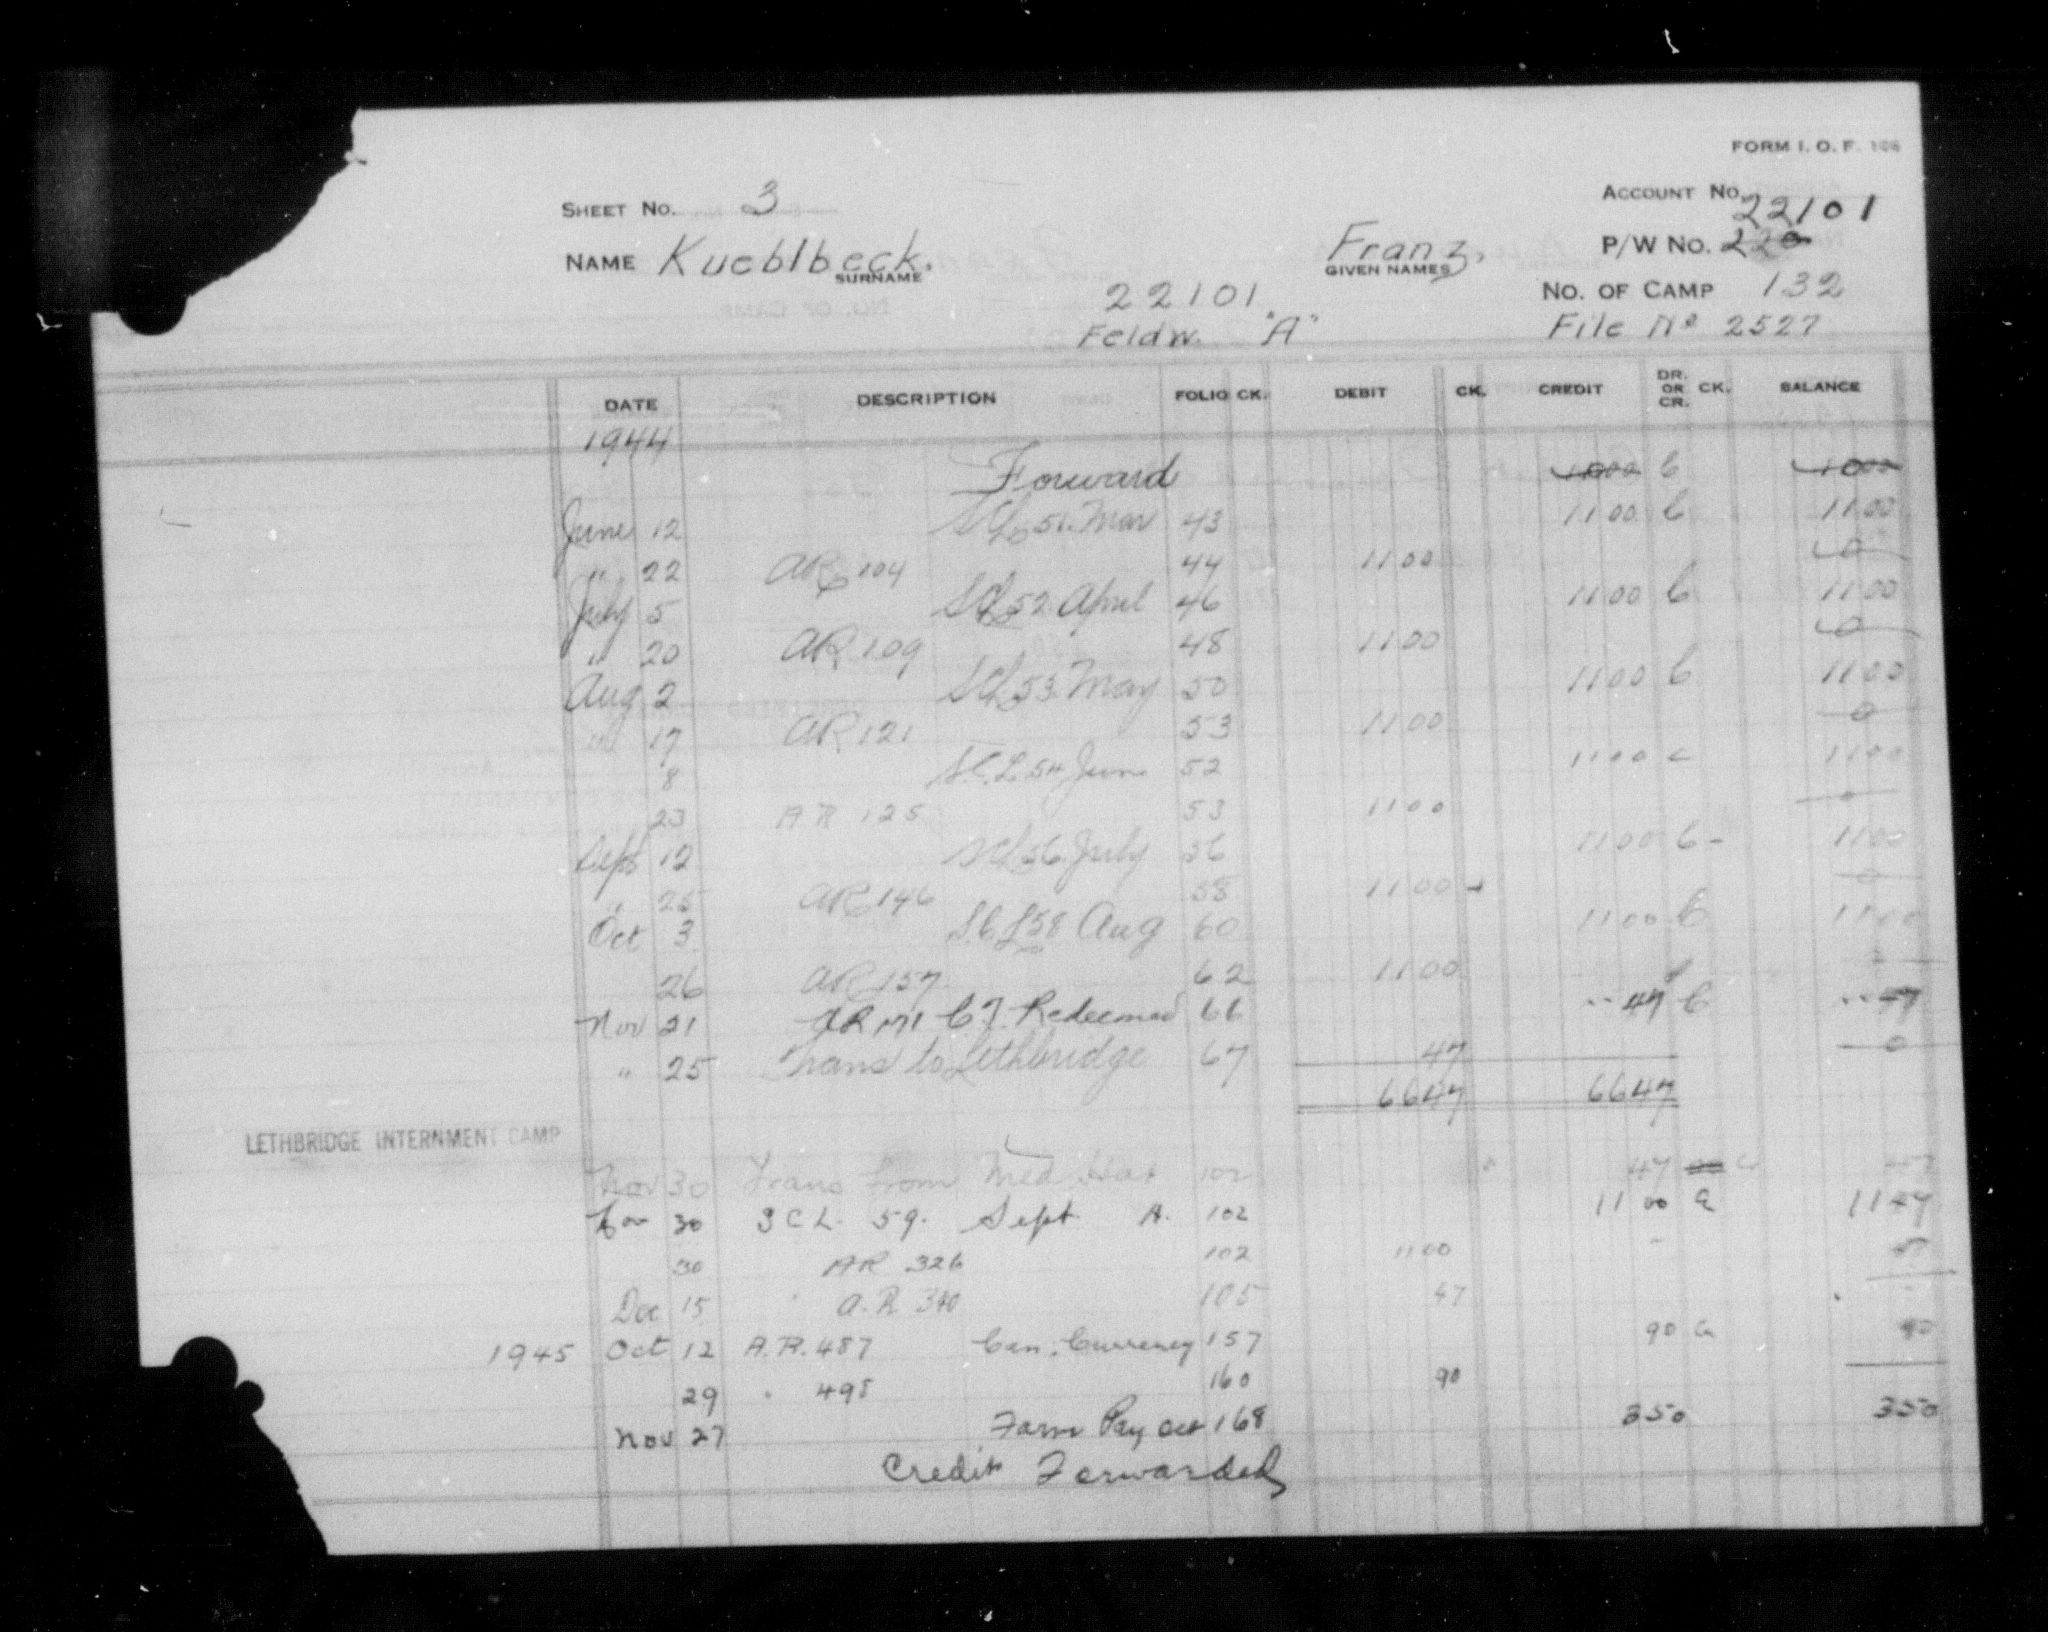 FORM I. O. F. 106
SHEET NO. 3 ACCOUNT NO. 22101
NAME Kueblbeck, Franz. P/W NO. 220
SURNAME GIVEN NAMES
22101 NO. OF CAMP 132
Feldw. "A" File No 2527
DATE DESCRIPTION FOLIO CK. DEBIT CK. CREDIT DR. OR CR. CK. BALANCE
1944
Forward 1000 C 1000
June 12 SCL 51. Mar 43 1100 C 1100
" 22 AR 104 44 1100 0
July 5 SCL 52 April 46 1100 C 1100
" 20 AR 109 48 1100 0
Aug 2 SCL 53. May 50 1100 C 1100
" 17 AR 121 53 1100 0
8 S.C.L 54 June 52 1100 C 1100
23 AR 125 53 1100 0
Sept 12 SCL 56 July 56 1100 C - 1100
" 25 AR 146 58 1100 0
Oct 3 S.C.L 58 Aug 60 1100 C 1100
26 AR 157 62 1100
Nov 21 AR 171 C.T. Redeemed 66 47 C 47
" 25 Trans to Lethbridge 67 47 0
6647 6647
LETHBRIDGE INTERNMENT CAMP
Nov 30 Trans from Med. Hat 102 47 47
Nov 30 SCL. 59. Sept A. 102 11 00 1147
30 AR 326 102 1100 47
Dec 15 " A.R 340 105 47
1945 Oct 12 A.R. 487 Can. Currency 157 90 90
29 " 495 160 90
Nov 27 Farm Pay Oct 168 350 350
Credit Forwarded